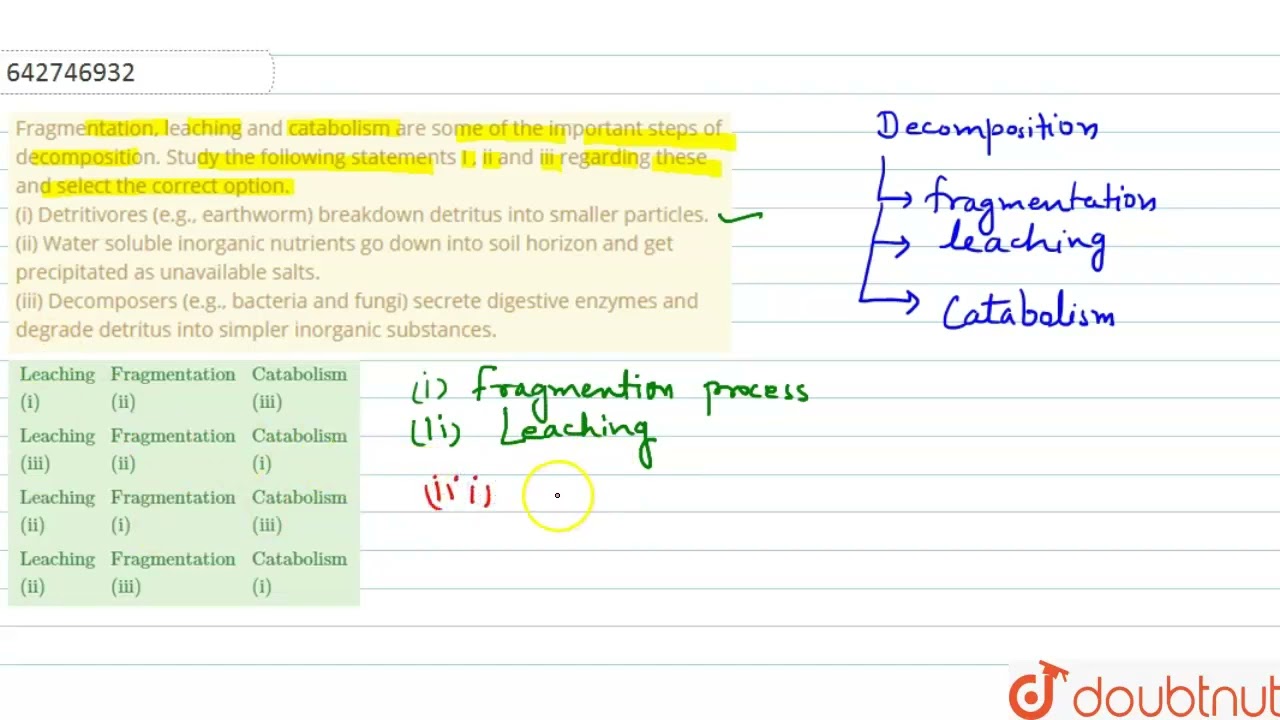 642746932
Fragmentation, leaching and catabolism are some of the important steps of
decomposition. Study the following statements I , ii and iii regarding these
and select the correct option.
(i) Detritivores (e.g., earthworm) breakdown detritus into smaller particles.
(ii) Water soluble inorganic nutrients go down into soil horizon and get
precipitated as unavailable salts.
(iii) Decomposers (e.g., bacteria and fungi) secrete digestive enzymes and
degrade detritus into simpler inorganic substances.
Leaching Fragmentation Catabolism
(i) (ii) (iii)
Leaching Fragmentation Catabolism
(iii) (ii) (i)
Leaching Fragmentation Catabolism
(ii) (i) (iii)
Leaching Fragmentation Catabolism
(ii) (iii) (i)
Decomposition
fragmentation
leaching
Catabolism
(i) Fragmention process
(ii) Leaching
(iii)
doubtnut